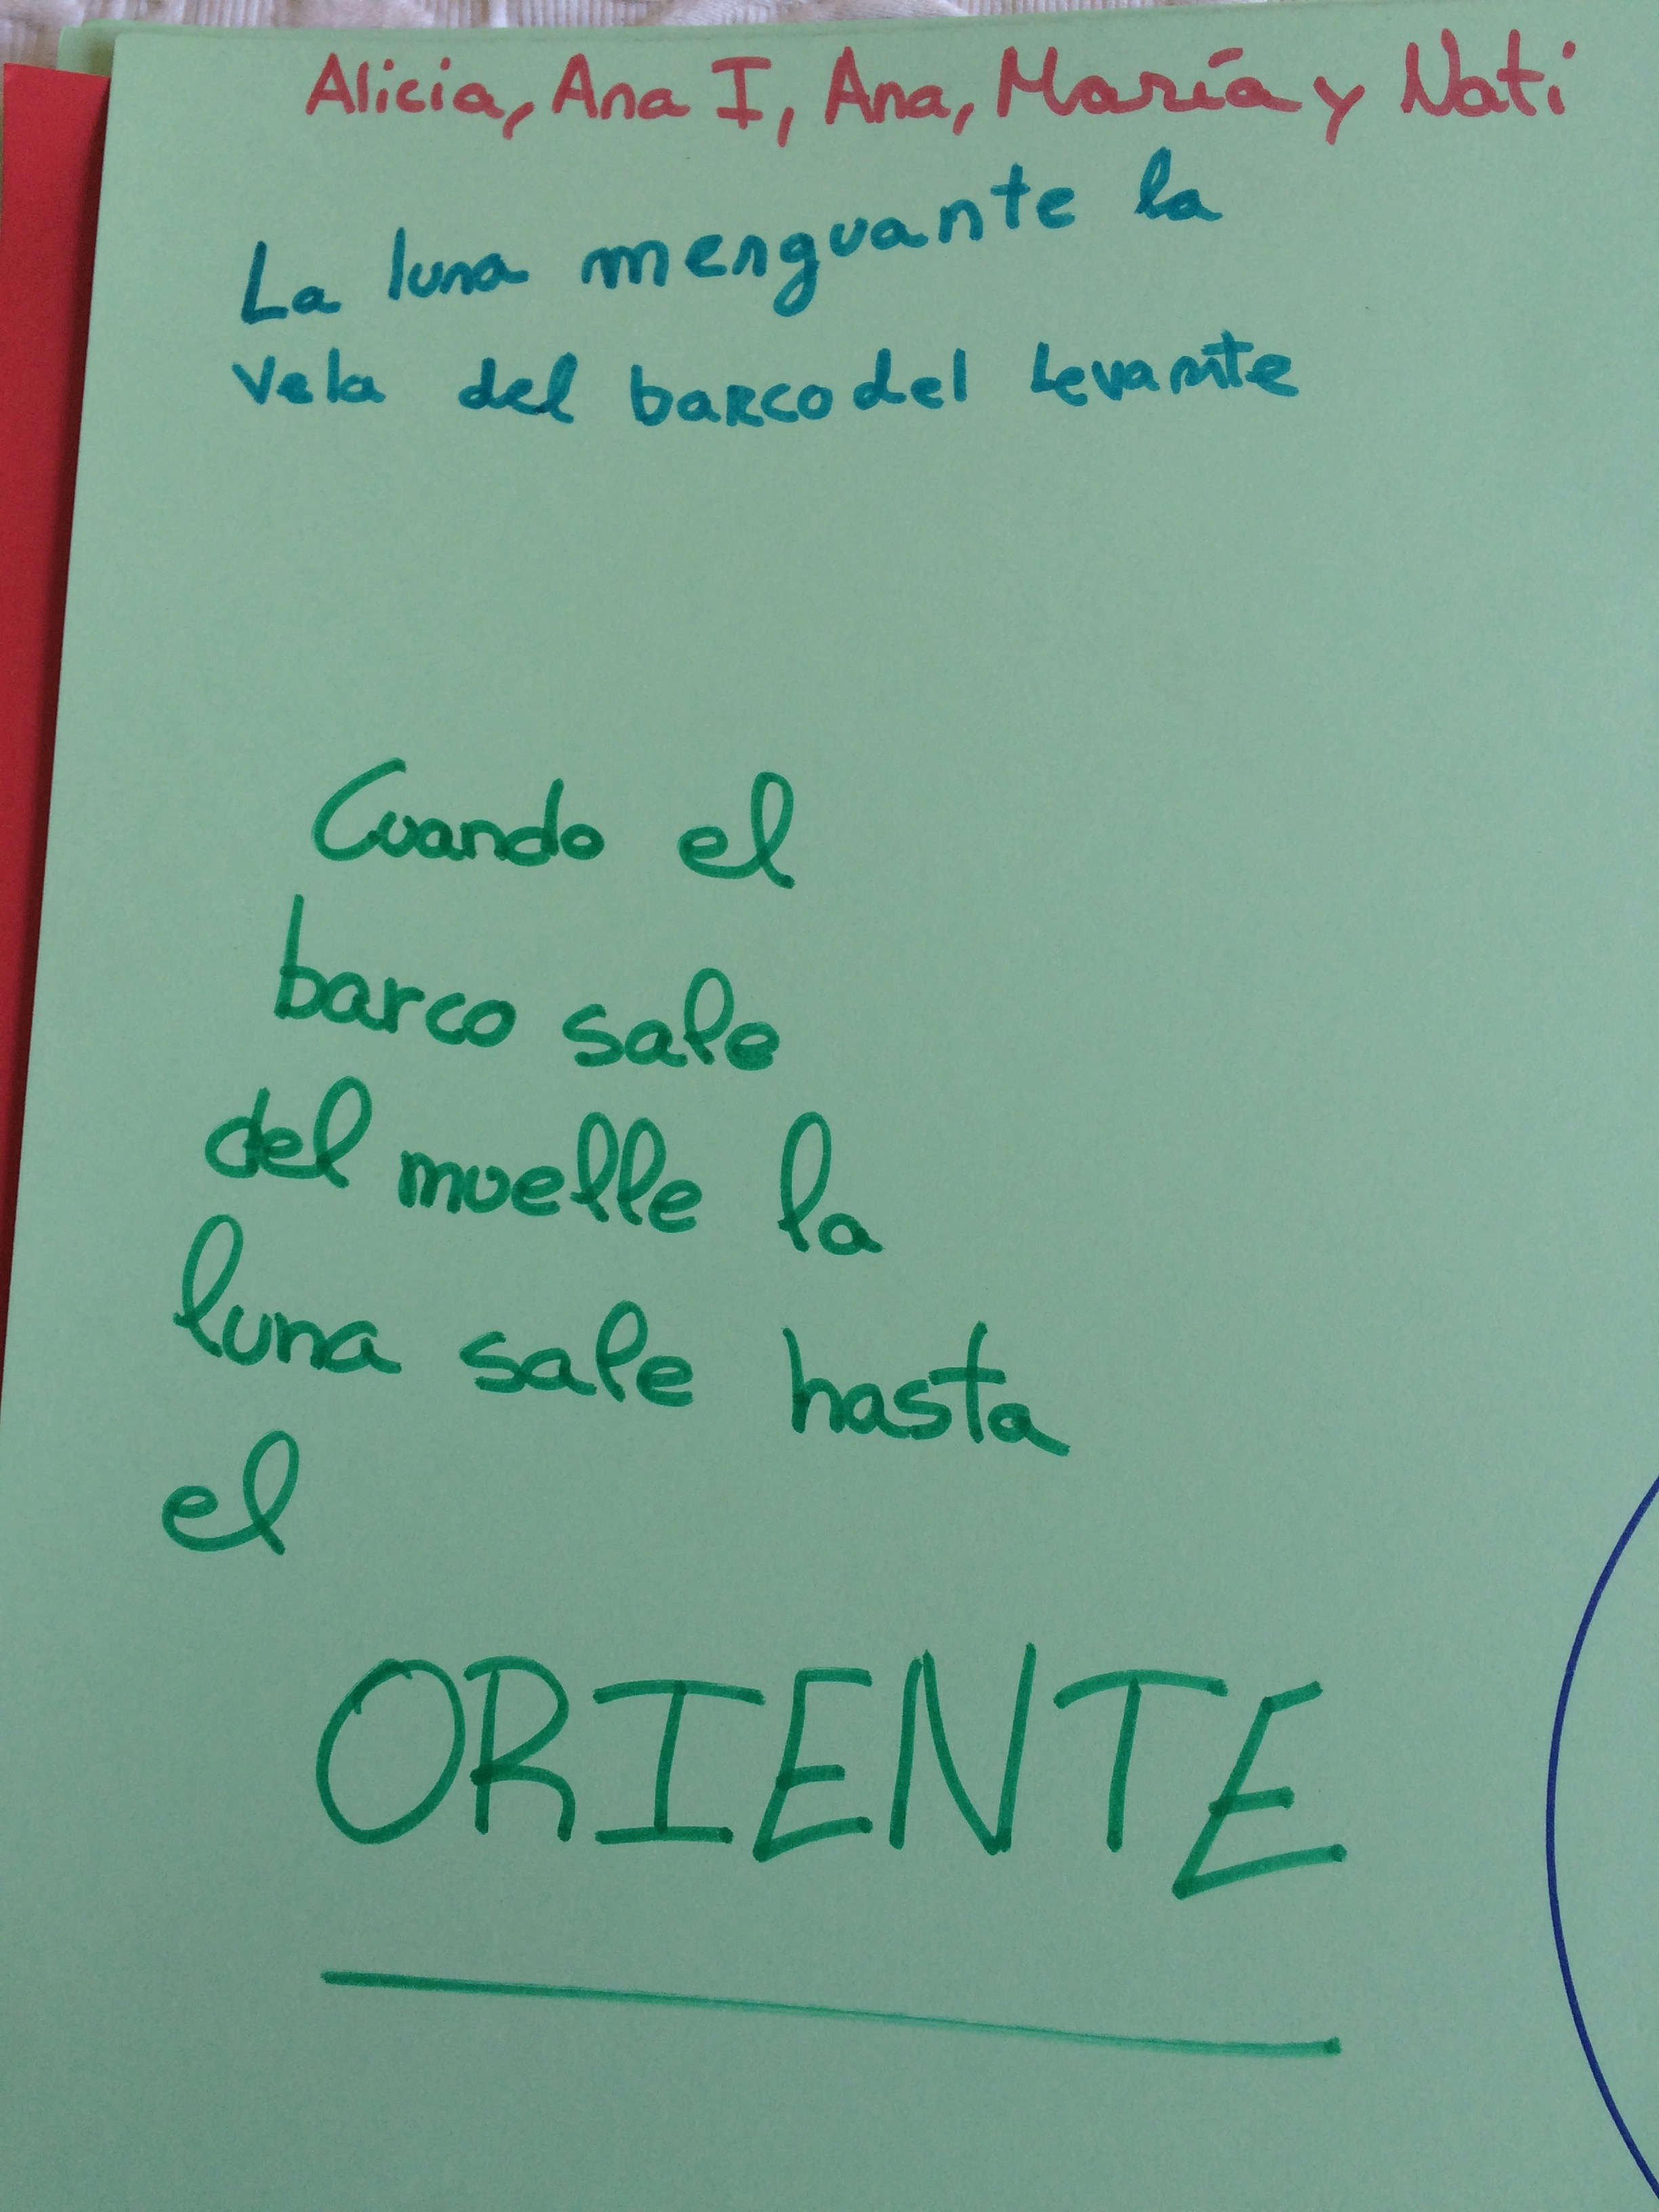 Alicia, Ana I, Ana, María y Nati
La luna menguante la
vela del barco del levante
Cuando el
barco sale
del muelle la
luna sale hasta
el
ORIENTE